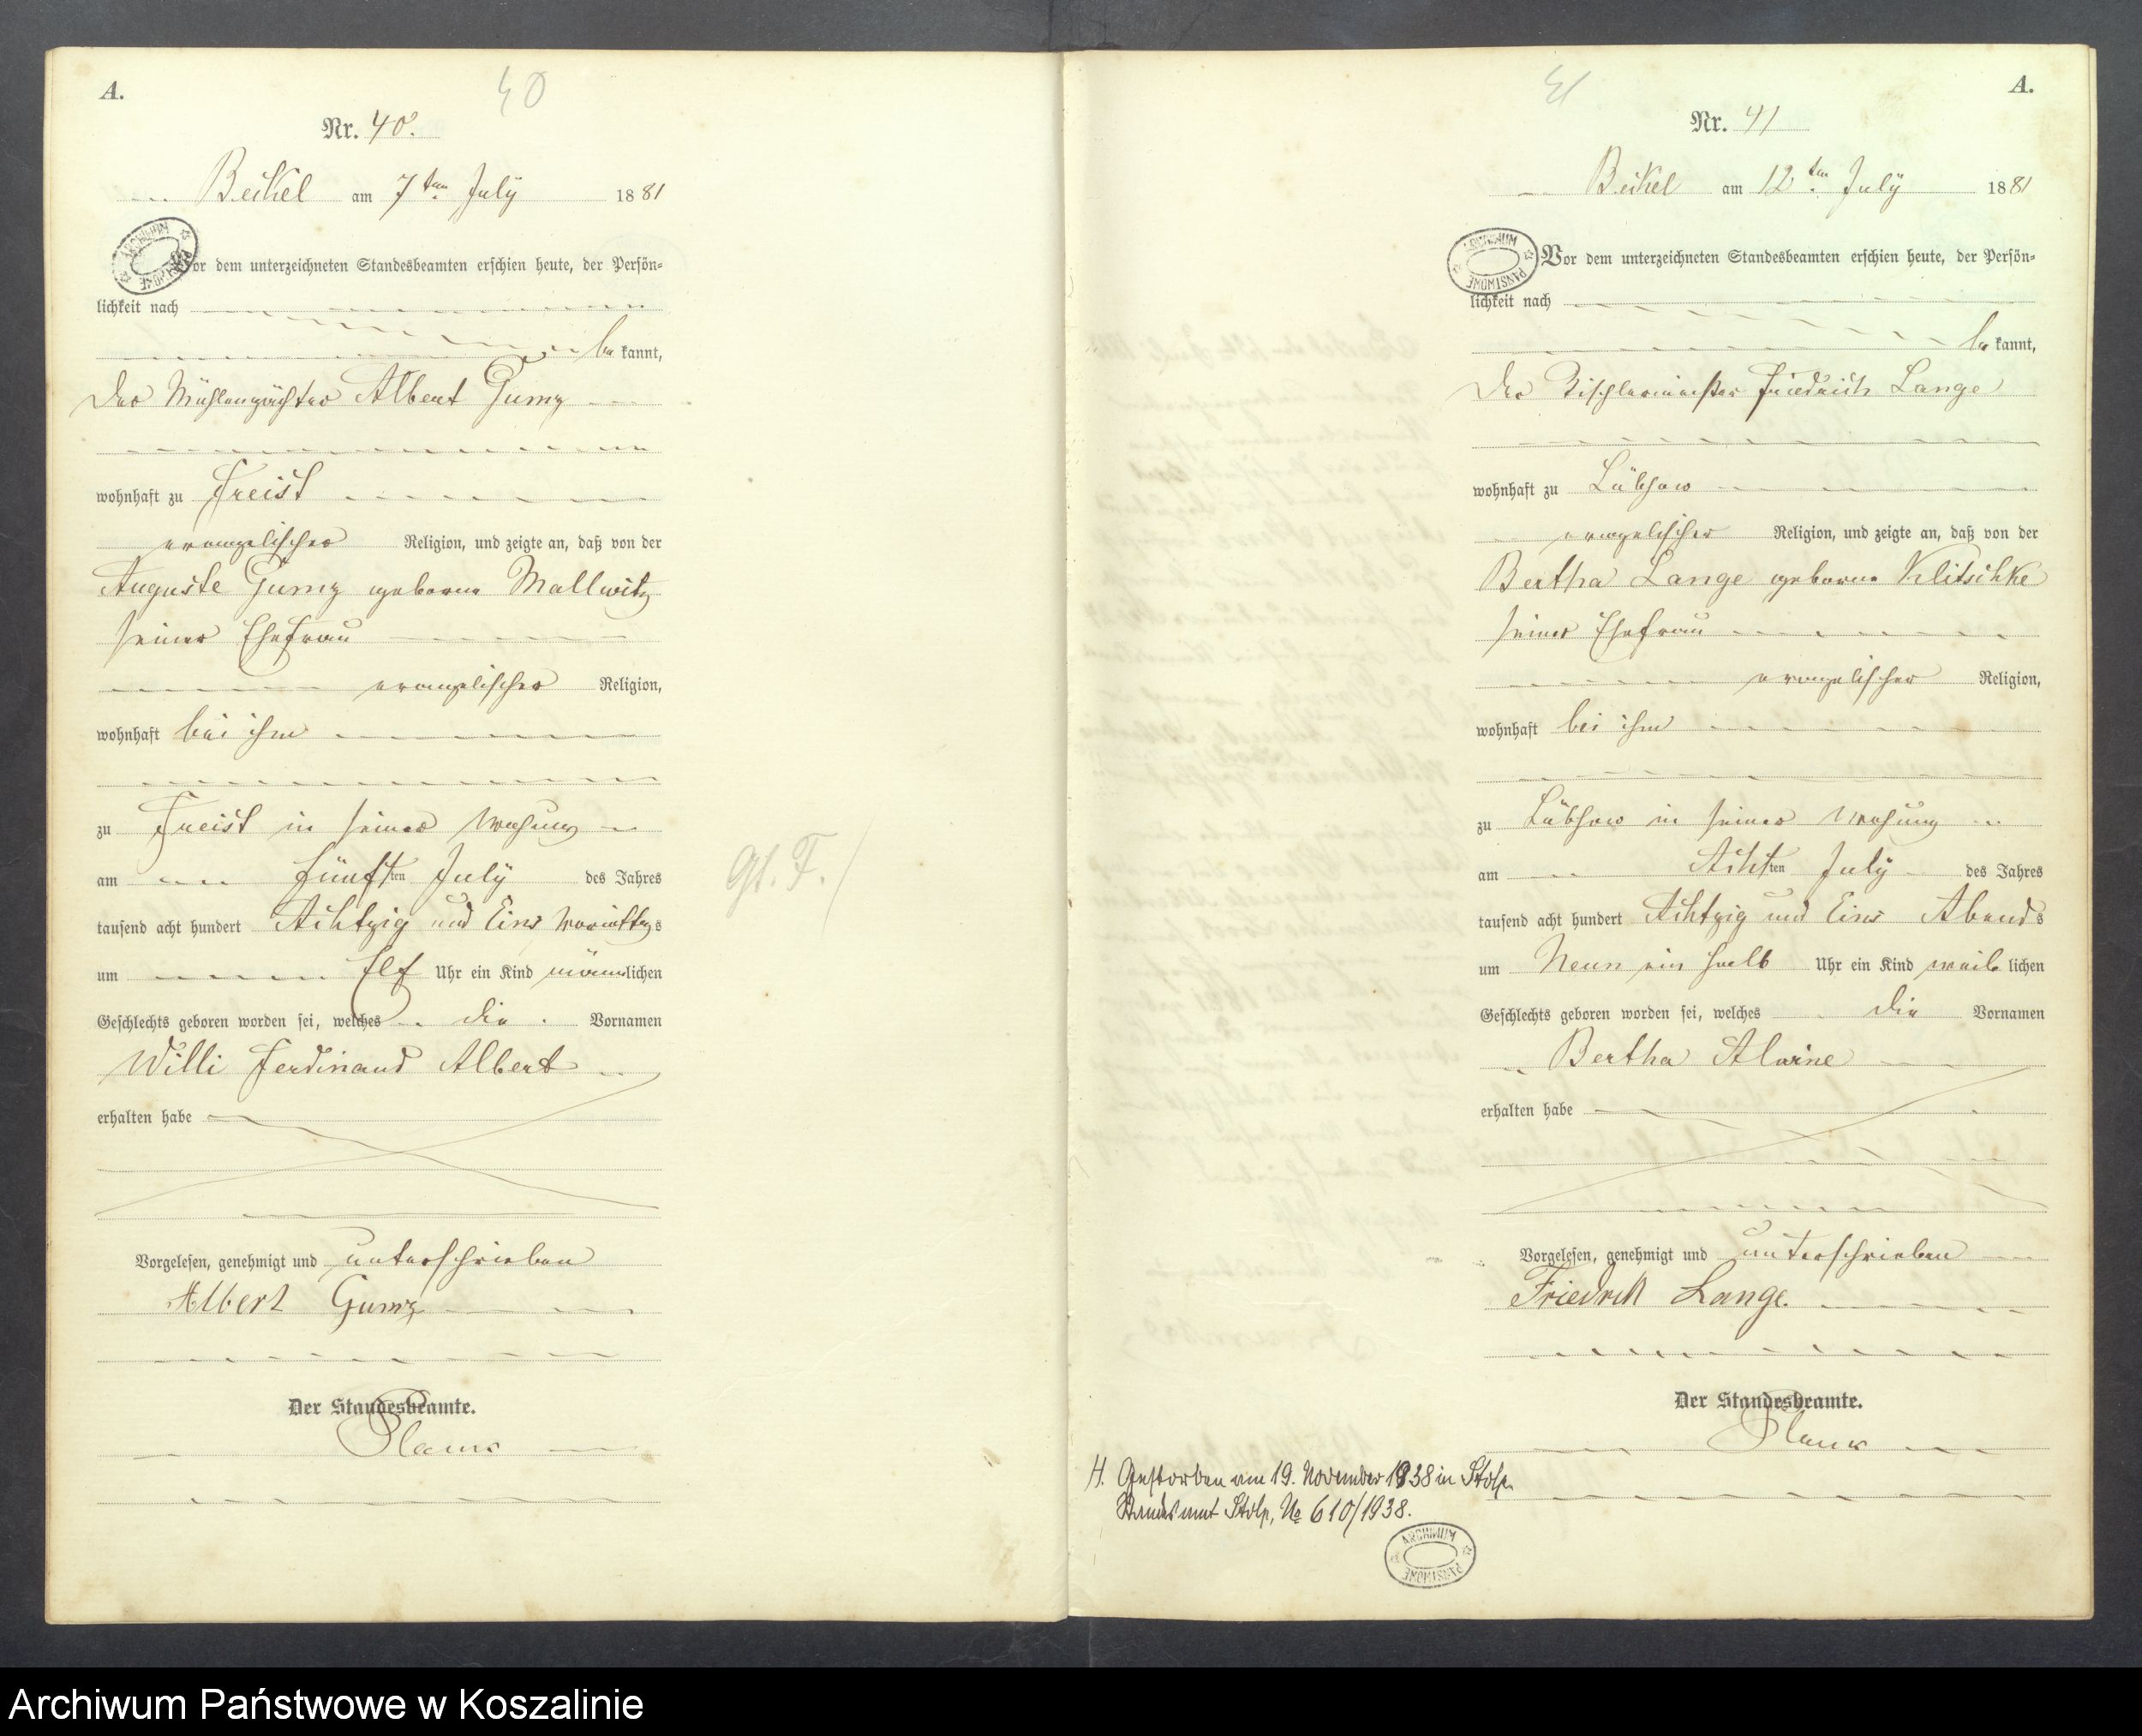 A.
40
Nr. 40.
Beckel am 7ten July 1881
ARCHIWUM PAŃSTWOWE
Vor dem unterzeichneten Standesbeamten erschien heute, der Persön-
lichkeit nach
be kannt,
der Mühlenpächter Albert Gumz
wohnhaft zu Freist
evangelischer Religion, und zeigte an, daß von der
Auguste Gumz geborne Mallwitz
seiner Ehefrau
evangelischer Religion,
wohnhaft bei ihm
zu Freist in seiner Wohnung
am fünften July des Jahres
tausend acht hundert Achtzig und Eins Vormittags
um Elf Uhr ein Kind männlichen
Geschlechts geboren worden sei, welches die Vornamen
Willi Ferdinand Albert
erhalten habe
Vorgelesen, genehmigt und unterschrieben
Albert Gumz
Der Standesbeamte.
Gl. F.
41
A.
Nr. 41
Beckel am 12ten July 1881
ARCHIWUM PAŃSTWOWE
Vor dem unterzeichneten Standesbeamten erschien heute, der Persön-
lichkeit nach
be kannt,
der Tischlermeister Friedrich Lange
wohnhaft zu Lübzow
evangelischer Religion, und zeigte an, daß von der
Bertha Lange geborne Klitschke
seiner Ehefrau
evangelischer Religion,
wohnhaft bei ihm
zu Lübzow in seiner Wohnung
am Achten July des Jahres
tausend acht hundert Achtzig und Eins Abends
um Neun ein halb Uhr ein Kind weiblichen
Geschlechts geboren worden sei, welches die Vornamen
Bertha Alwine
erhalten habe
Vorgelesen, genehmigt und unterschrieben
Friedrich Lange.
Der Standesbeamte.
H. Gestorben am 19. November 1938 in Stolp.
Standesamt Stolp, No 610/1938.
ARCHIWUM PAŃSTWOWE
Archiwum Państwowe w Koszalinie